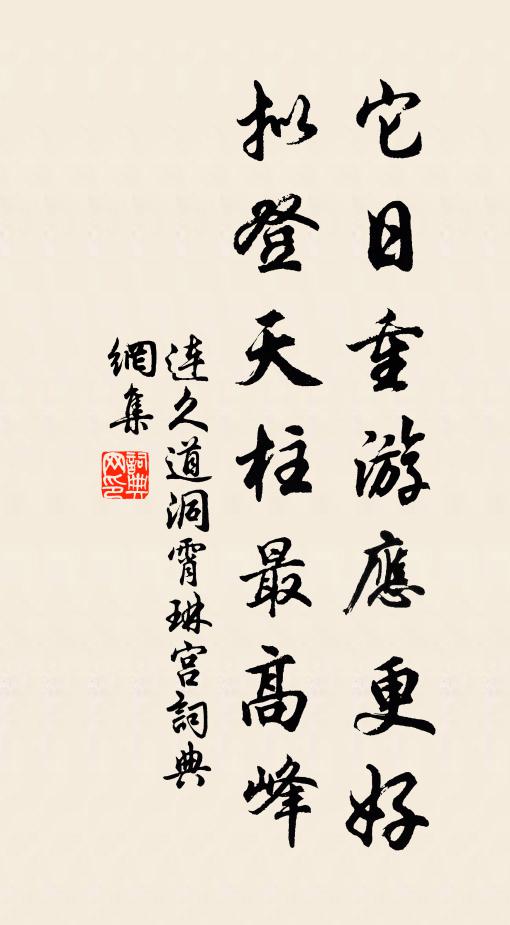 它日重游應更好
拟登天柱最高峰
連久道洞霄琳宫詞典
網集
詞典網印